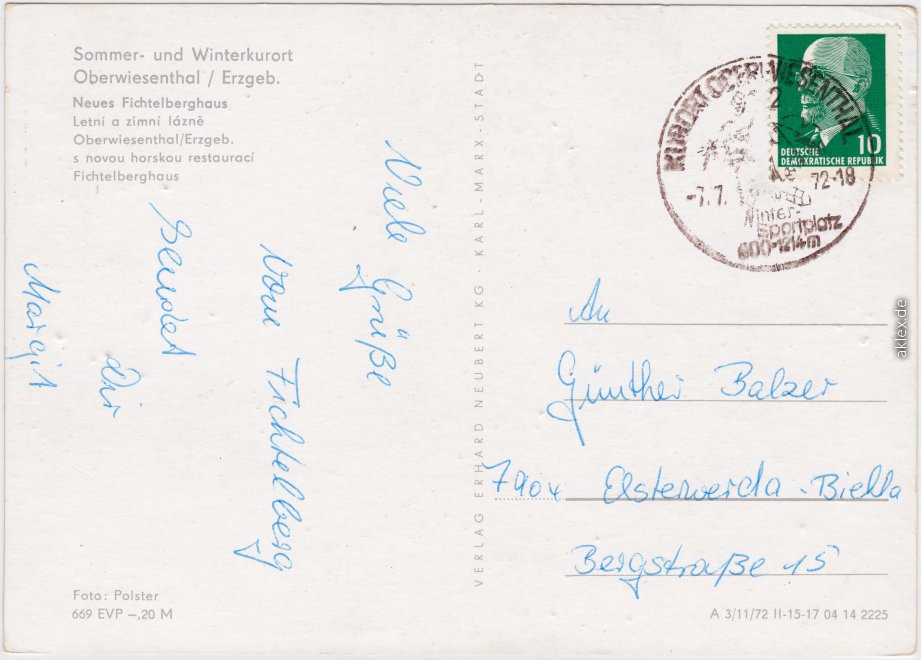 Sommer- und Winterkurort
Oberwiesenthal / Erzgeb.
Neues Fichtelberghaus
Letní a zimní lázně
Oberwiesenthal/Erzgeb.
s novou horskou restaurací
Fichtelberghaus
Viele Grüße
vom Fichtelberg
sendet
Dir
Margit
Foto: Polster
669 EVP –,20 M
VERLAG ERHARD NEUBERT KG · KARL-MARX-STADT
KURORT OBERWIESENTHAL
2
-7.7.
72-18
Winter-
sportplatz
600-1214m
10
DEUTSCHE
DEMOKRATISCHE REPUBLIK
An
Günther Balzer
7904 Elsterwerda-Biehla
Bergstraße 15
A 3/11/72 II-15-17 04 14 2225
aklex.de